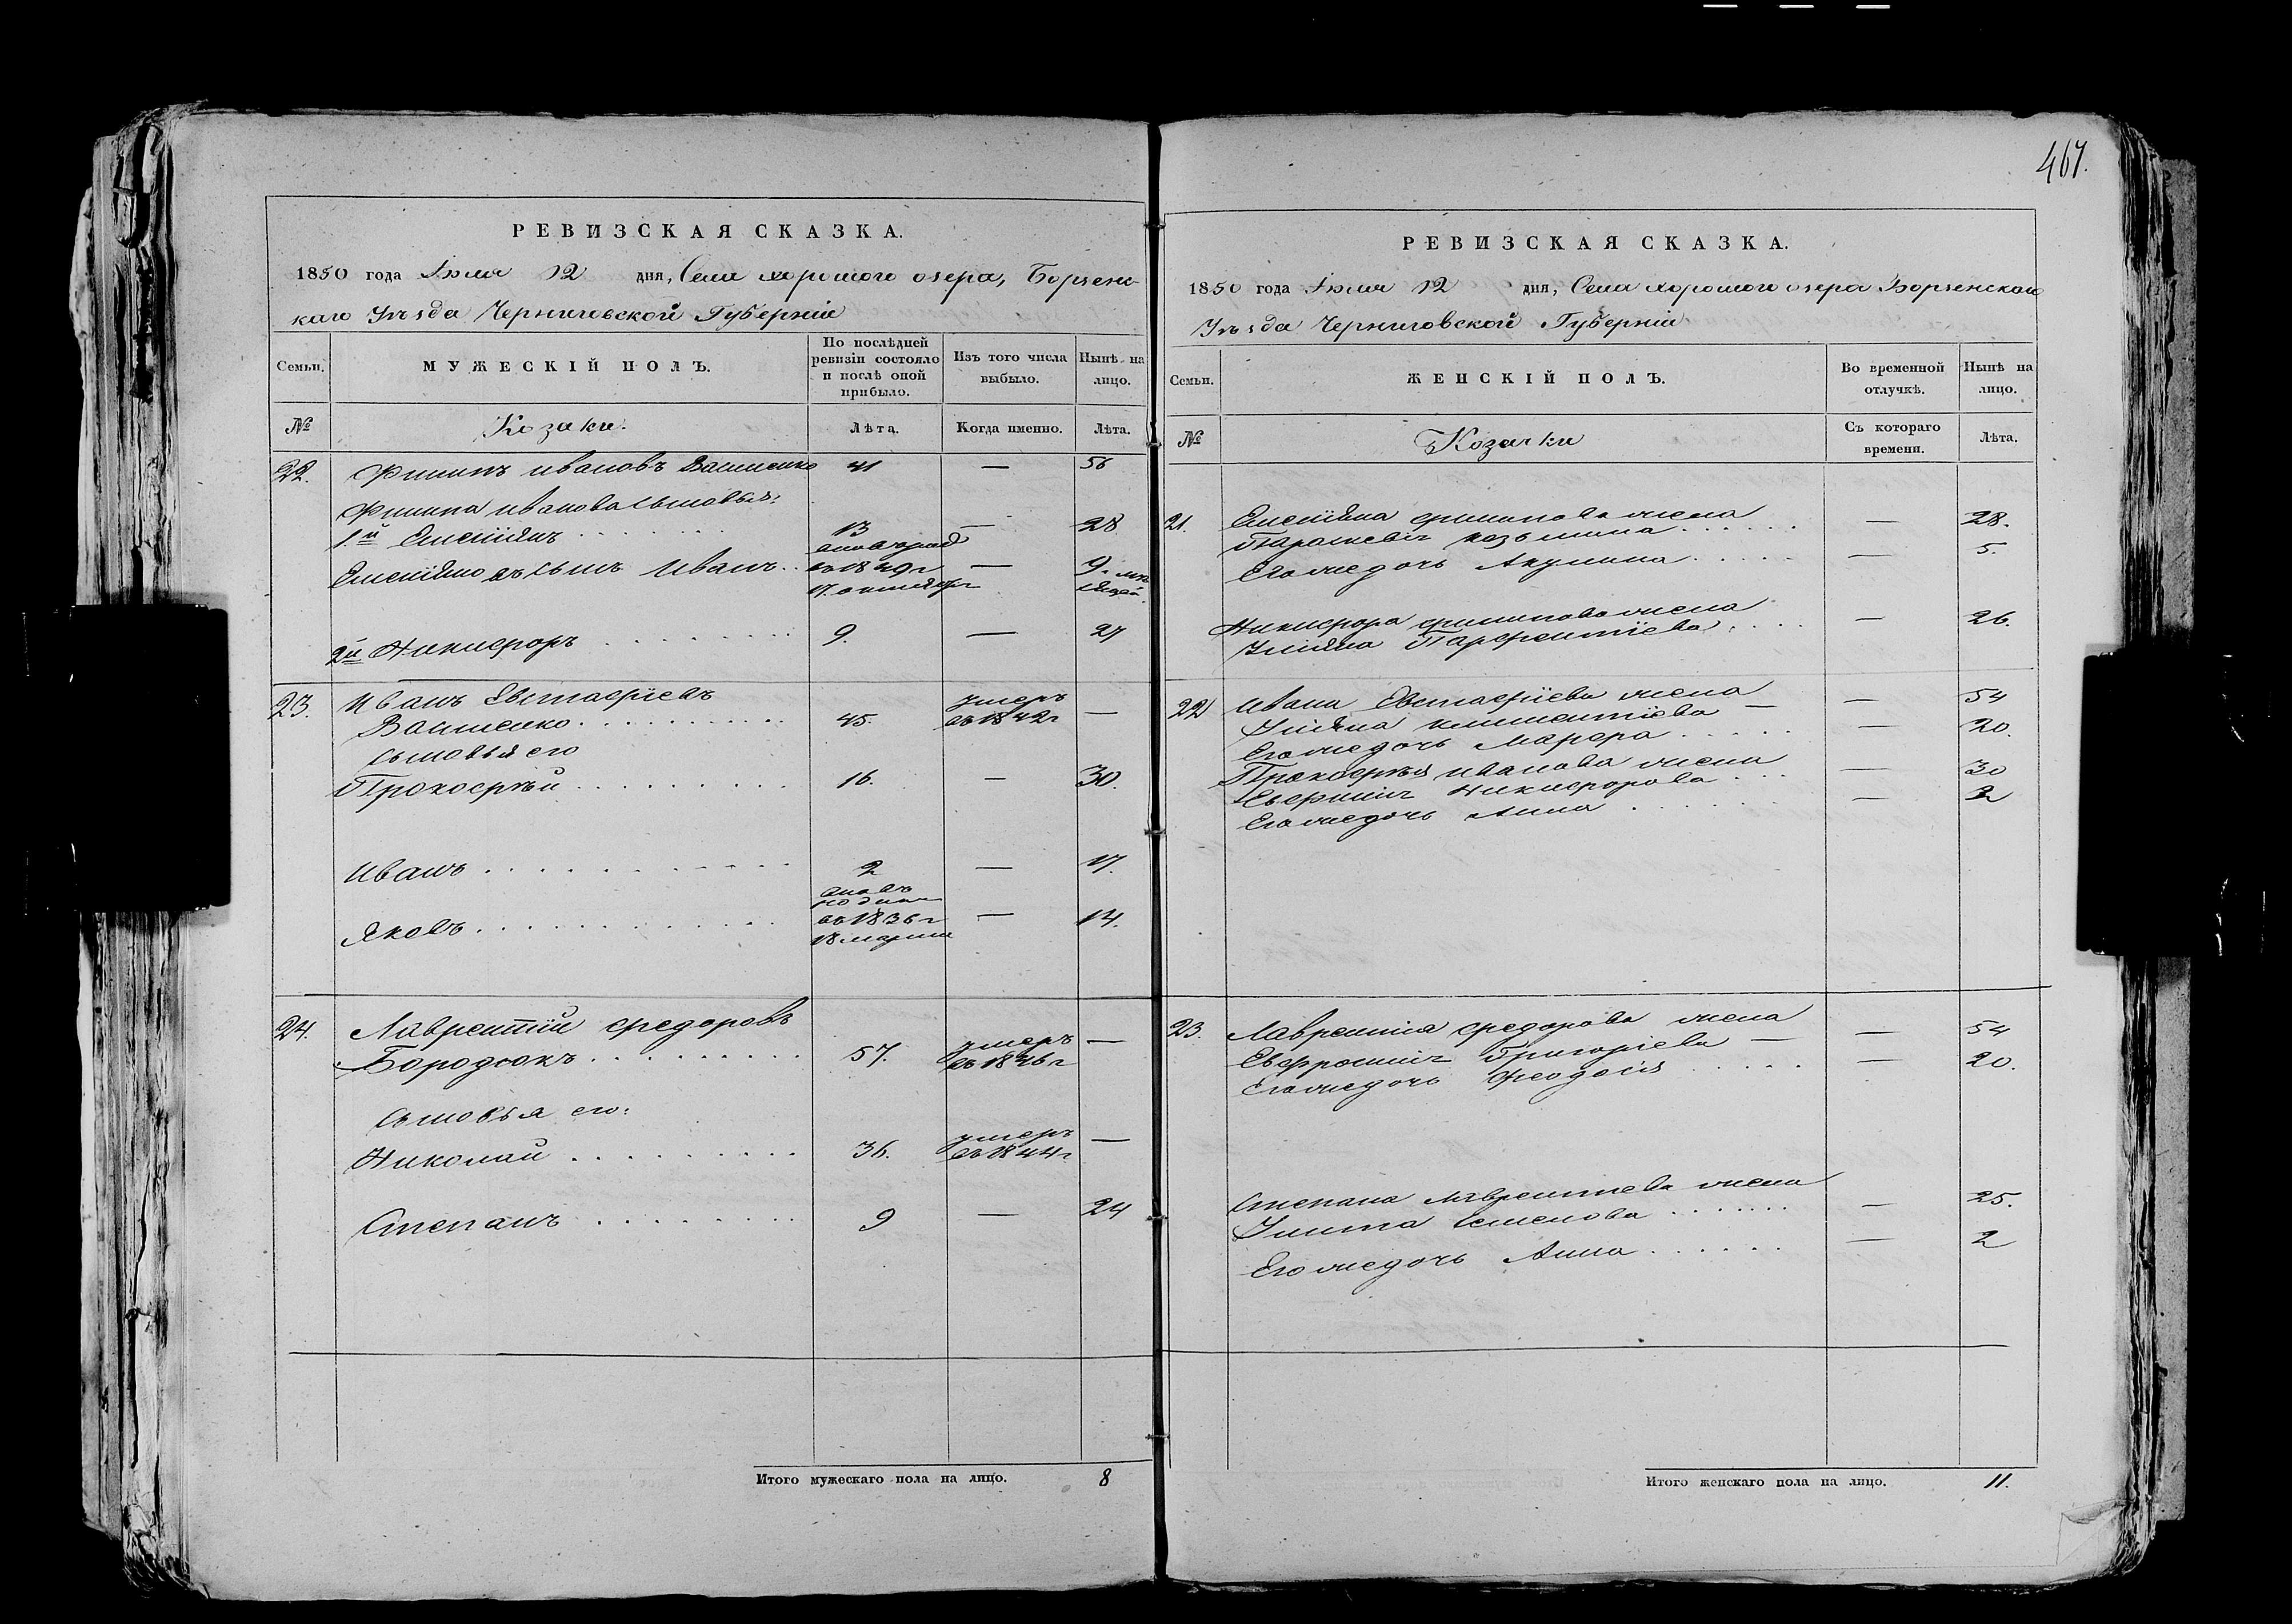 467.
РЕВИЗСКАЯ СКАЗКА.
1850 года Іюля 12 дня, Села хорошого озера, Борзенс-
каго Уѣзда Черниговской Губерніи
Семьи. МУЖЕСКІЙ ПОЛЪ. По послѣдней ревизіи состояло и послѣ оной прибыло. Изъ того числа выбыло. Нынѣ на лицо.
№ Козаки. Лѣта. Когда именно. Лѣта.
22. Филипъ ивановъ Ващенко 41 — 56
Филипа иванова сыновья:
1й Емеліянъ 13 — 28
Емеліяновъ сынъ Иванъ вновь рожд въ 1849 г 17 октября — 9 мѣсяцей
2й Никифоръ 9. — 24
23. Иванъ Евстафіевъ
Ващенко 45. умеръ въ 1842 г —
сыновья его
Прокофѣй 16. — 30.
Иванъ 2 — 17.
Яковъ вновь родил въ 1836 г 18 марта — 14.
24. Лаврентій федоровъ
Бородюкъ 57. умеръ въ 1846 г —
сыновья его:
Николай 36. умеръ въ 1844 г —
Степанъ 9 — 24
Итого мужескаго пола на лицо. 8
РЕВИЗСКАЯ СКАЗКА.
1850 года Іюля 12 дня, Села хорошого озера Борзенскаго
Уѣзда Черниговской Губерніи
Семьи. ЖЕНСКІЙ ПОЛЪ. Во временной отлучкѣ. Нынѣ на лицо.
№ Козачки Съ котораго времени. Лѣта.
21. Емеліяна филипова жена
Параскевія козьмина — 28.
Его же дочь Акулина — 5.
Никифора филипова жена
Уліяна Парфентіева — 26.
22 Ивана Евстафіева жена — 54
Уліяна климентіева —
Его же дочь Марфа — 20.
Прокофѣя иванова жена
Никифорова — 30
Его же дочь Анна — 2
23. Лаврентія федорова жена — 54
Евфросинія Григоріева —
Его же дочь Феодосія — 20.
Степана лаврентіева жена
Улита семенова — 25.
Его же дочь Анна — 2
Итого женскаго пола на лицо. 11.